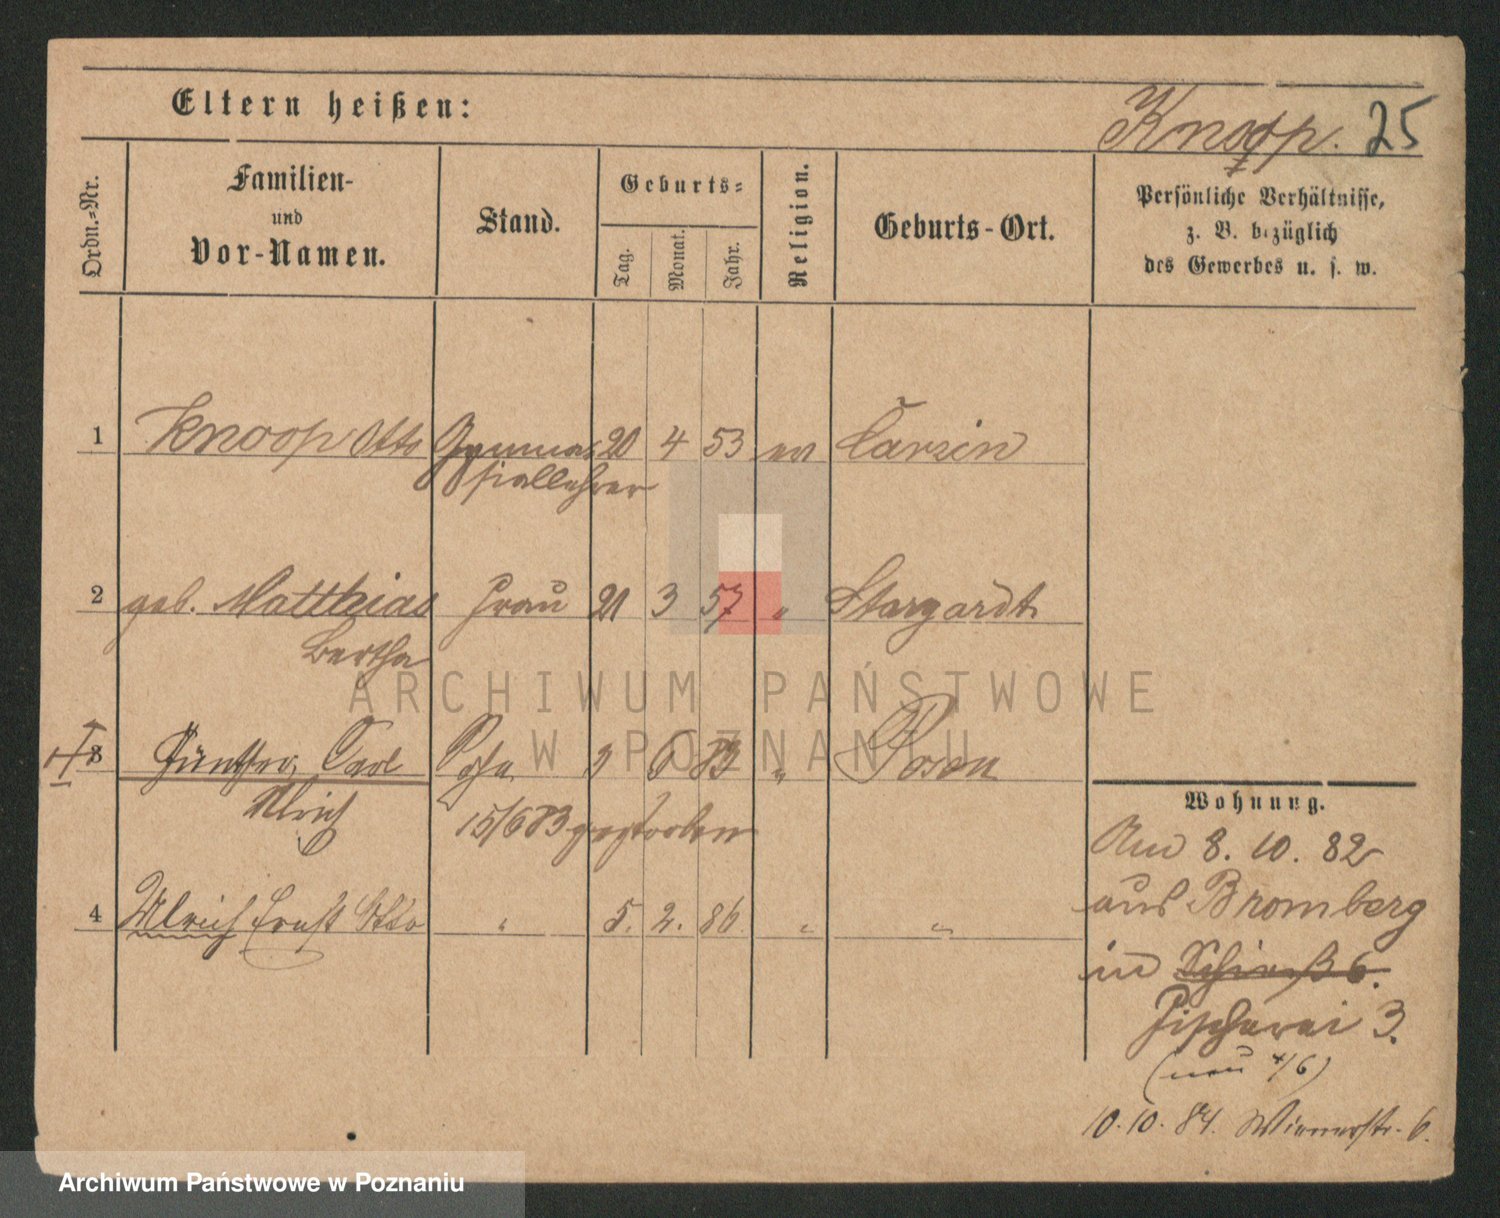 Eltern heißen:
Knoop. 25
Ordn.=Nr.
Familien-
und
Vor-Namen.
Stand.
Geburts=
Tag.
Monat.
Jahr.
Religion.
Geburts-Ort.
Persönliche Verhältnisse,
z. B. bezüglich
des Gewerbes u. s. w.
1 Knoop Otto Gymna- 20 4 53 ev Carzin
siallehrer
2 geb. Matthias Frau 21 3 57 " Stargardt
Bertha
3 Günther, Carl 3 6 83 " Posen
Ulrich
15/6 83 gestorben
4 Ulrich Ernst Otto " 5. 2. 86 " "
Wohnung.
Am 8. 10. 82
aus Bromberg
in Schieß 6.
Fischerei 3.
(neu 4/6)
10. 10. 84. Wienerstr. 6.
ARCHIWUM PAŃSTWOWE
W POZNANIU
Archiwum Państwowe w Poznaniu